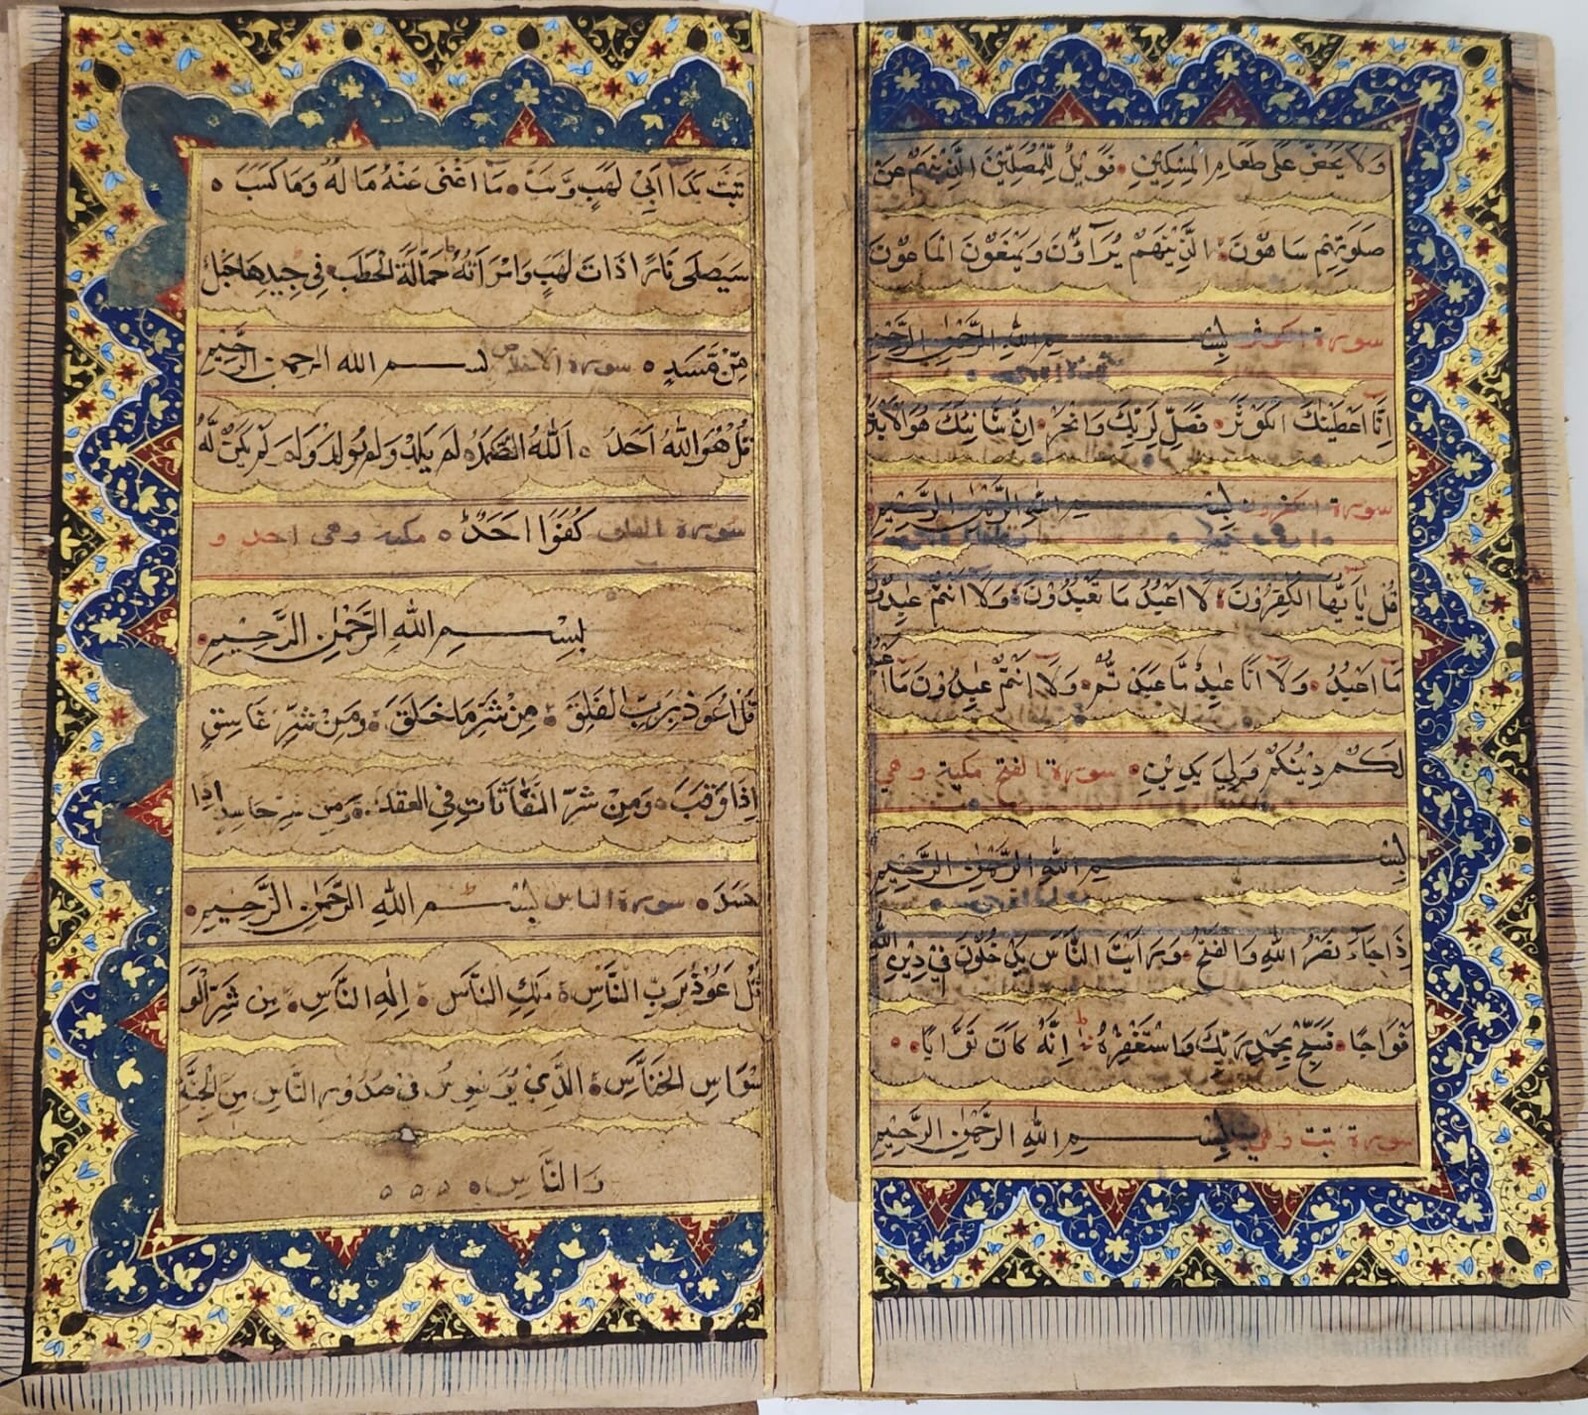 وَلَا يَحُضُّ عَلَى طَعَامِ الْمِسْكِيْنِ فَوَيْلٌ لِّلْمُصَلِّيْنَ الَّذِيْنَ هُمْ عَنْ
صَلَوتِهِمْ سَاهُوْنَ الَّذِيْنَ هُمْ يُرَآؤُنَ وَيَمْنَعُوْنَ الْمَاعُوْنَ
سورة الكوثر بِسْمِ اللهِ الرَّحْمٰنِ الرَّحِيْمِ
اِنَّا اَعْطَيْنٰكَ الْكَوْثَرَ فَصَلِّ لِرَبِّكَ وَانْحَرْ اِنَّ شَانِئَكَ هُوَ الْاَبْتَرُ
سورة الكفرون بِسْمِ اللهِ الرَّحْمٰنِ الرَّحِيْمِ
قُلْ يٰاَيُّهَا الْكٰفِرُوْنَ لَا اَعْبُدُ مَا تَعْبُدُوْنَ وَلَا اَنْتُمْ عٰبِدُوْنَ
مَا اَعْبُدُ وَلَا اَنَا عَابِدٌ مَّا عَبَدْتُّمْ وَلَا اَنْتُمْ عٰبِدُوْنَ مَا اَعْبُدُ
لَكُمْ دِيْنُكُمْ وَلِيَ دِيْنِ سورة الفتح مكية وهي
بِسْمِ اللهِ الرَّحْمٰنِ الرَّحِيْمِ
اِذَا جَآءَ نَصْرُ اللهِ وَالْفَتْحُ وَرَاَيْتَ النَّاسَ يَدْخُلُوْنَ فِيْ دِيْنِ اللهِ
اَفْوَاجًا فَسَبِّحْ بِحَمْدِ رَبِّكَ وَاسْتَغْفِرْهُ ط اِنَّهُ كَانَ تَوَّابًا
سورة تبت وهي بِسْمِ اللهِ الرَّحْمٰنِ الرَّحِيْمِ
تَبَّتْ يَدَا اَبِيْ لَهَبٍ وَّتَبَّ مَا اَغْنٰى عَنْهُ مَا لُهُ وَمَا كَسَبَ
سَيَصْلٰى نَارًا ذَاتَ لَهَبٍ وَامْرَاَتُهُ ط حَمَّالَةَ الْحَطَبِ فِيْ جِيْدِهَا حَبْلٌ
مِّنْ مَّسَدٍ سورة الاخلاص بسم الله الرحمن الرَّحِيْمِ
قُلْ هُوَ اللهُ اَحَدٌ اَللهُ الصَّمَدُ لَمْ يَلِدْ وَلَمْ يُوْلَدْ وَلَمْ يَكُنْ لَّهُ
كُفُوًا اَحَدٌ سورة الفلق مكية وهي احد و
بِسْمِ اللهِ الرَّحْمٰنِ الرَّحِيْمِ
قُلْ اَعُوْذُ بِرَبِّ الْفَلَقِ مِنْ شَرِّ مَا خَلَقَ وَمِنْ شَرِّ غَاسِقٍ
اِذَا وَقَبَ وَمِنْ شَرِّ النَّفَّاثَاتِ فِي الْعُقَدِ وَمِنْ شَرِّ حَاسِدٍ اِذَا
حَسَدَ سورة الناس بِسْمِ اللهِ الرَّحْمٰنِ الرَّحِيْمِ
قُلْ اَعُوْذُ بِرَبِّ النَّاسِ مَلِكِ النَّاسِ اِلٰهِ النَّاسِ مِنْ شَرِّ الْوَ
سْوَاسِ الْخَنَّاسِ الَّذِيْ يُوَسْوِسُ فِيْ صُدُوْرِ النَّاسِ مِنَ الْجِنَّةِ
وَالنَّاسِ